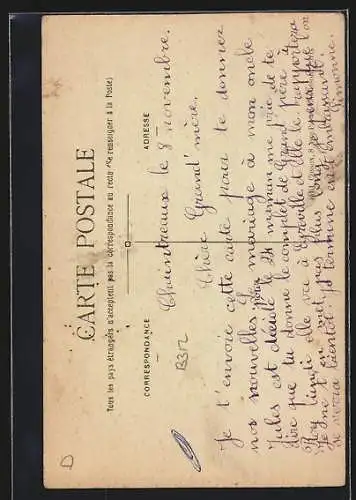 CARTE POSTALE
Tous les pays étrangers n'acceptent pas la correspondance au recto (Se renseigner à la Poste)
CORRESPONDANCE
ADRESSE
B352
D
Chaintreaux le 8 novembre.
Chère Grand'mère,
Je t'envoie cette carte pour te donner
nos nouvelles, le mariage à mon oncle
Jules est décidé le 24 maman me prie de te
dire que tu donne le complet de grand père à
l'unti elle va à Egreville et elle le rapportera
Je ne t'en met pas plus long je pense que l'on
se verra bientôt. Je termine en t'embrassant.
Simonne.